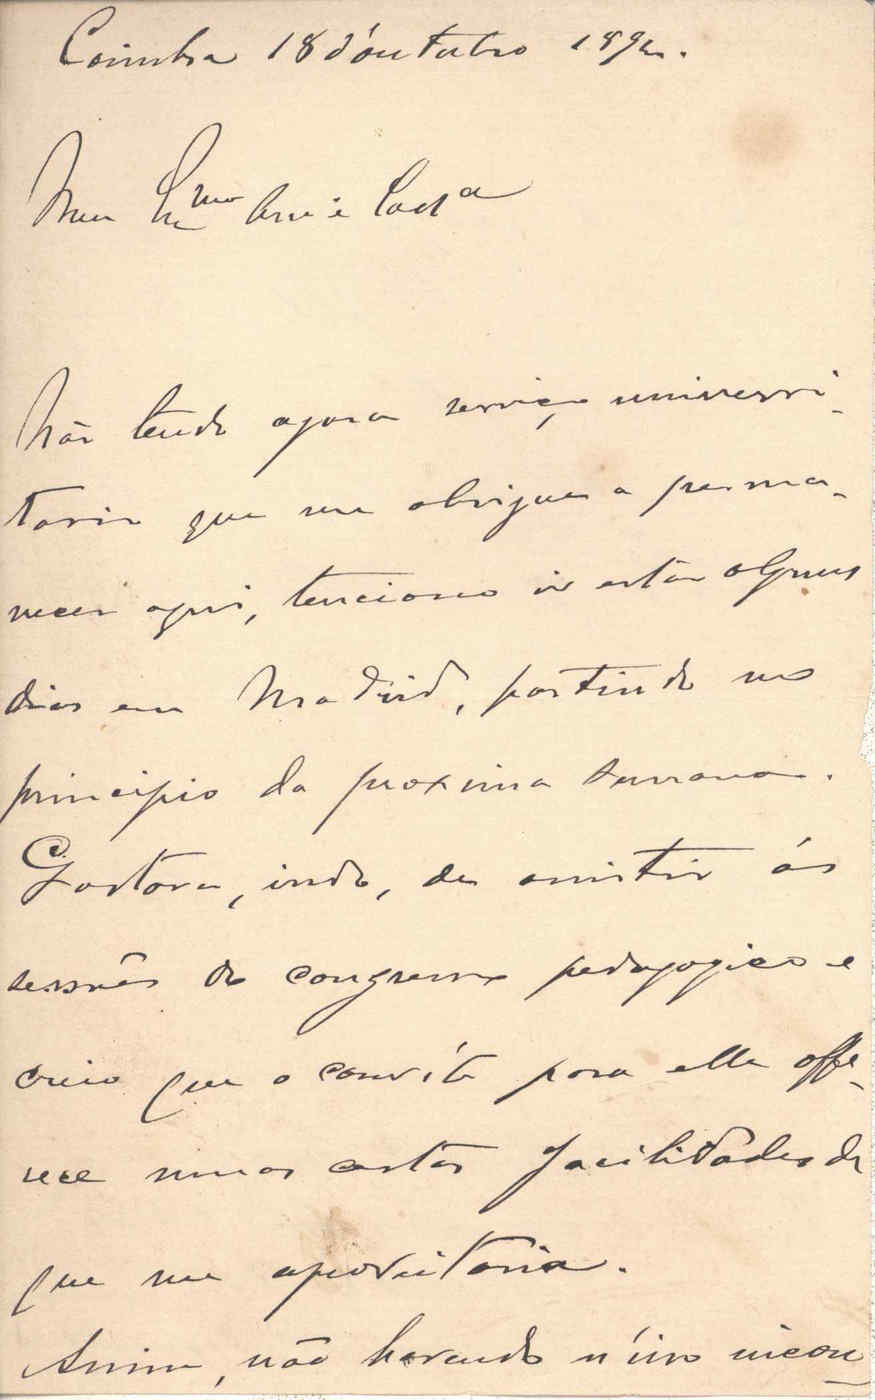 Coimbra 18 d'outubro 1892.
Meu Ex.mo Am.º e Costa
Não tendo agora serviço universi-
tario que me obrigue a perma-
necer aqui, tenciono ir estar alguns
dias em Madrid, partindo no
principio da proxima semana.
Gostava, indo, de assistir ás
sessões do congresso pedagogico e
creio que o convite para elle offe-
rece umas certas facilidades de
que me aproveitaria.
Assim, não havendo n'isso incon